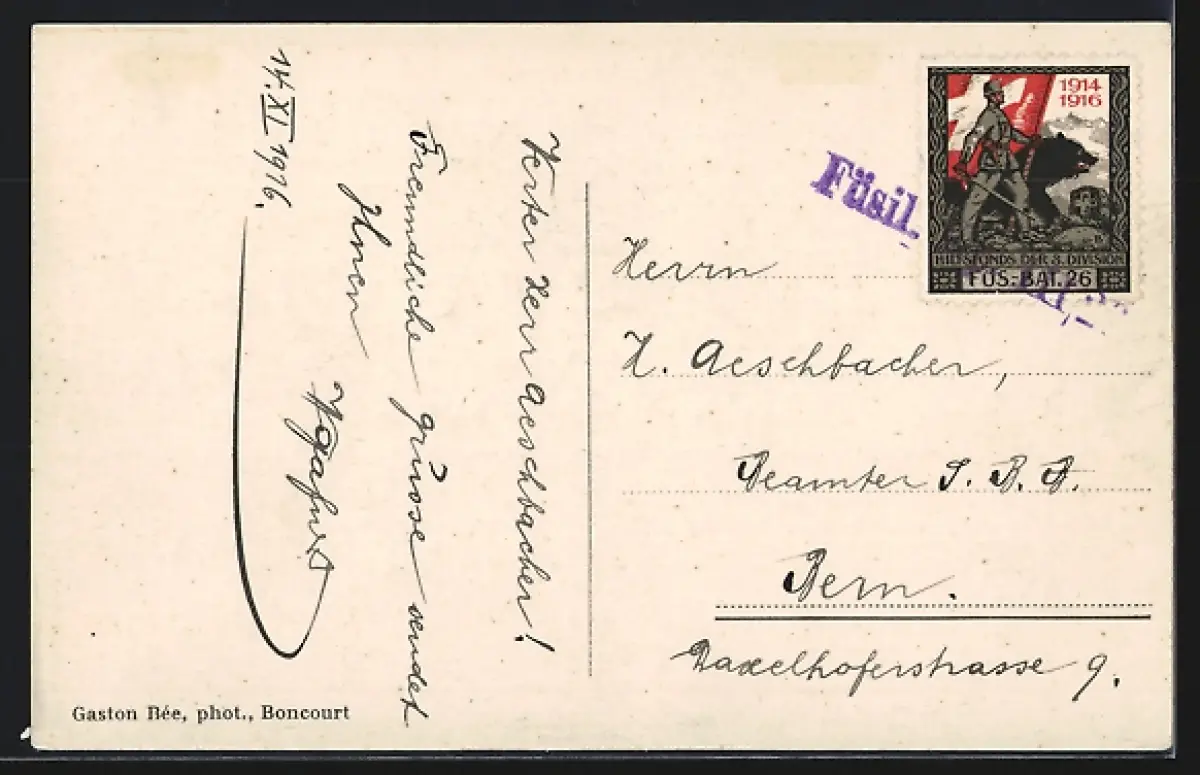 14. XI 1916.
Werter Herr Aeschbacher!
Freundliche grüsse sendet
Ihnen
Gaston Bée, phot., Boncourt
1914
1916
HILFSFONDS DER 3. DIVISION
FÜS.-BAT. 26
Füsil.
Herrn
H. Aeschbacher,
Beamter S. B. B.
Bern.
Daxelhoferstrasse 9.